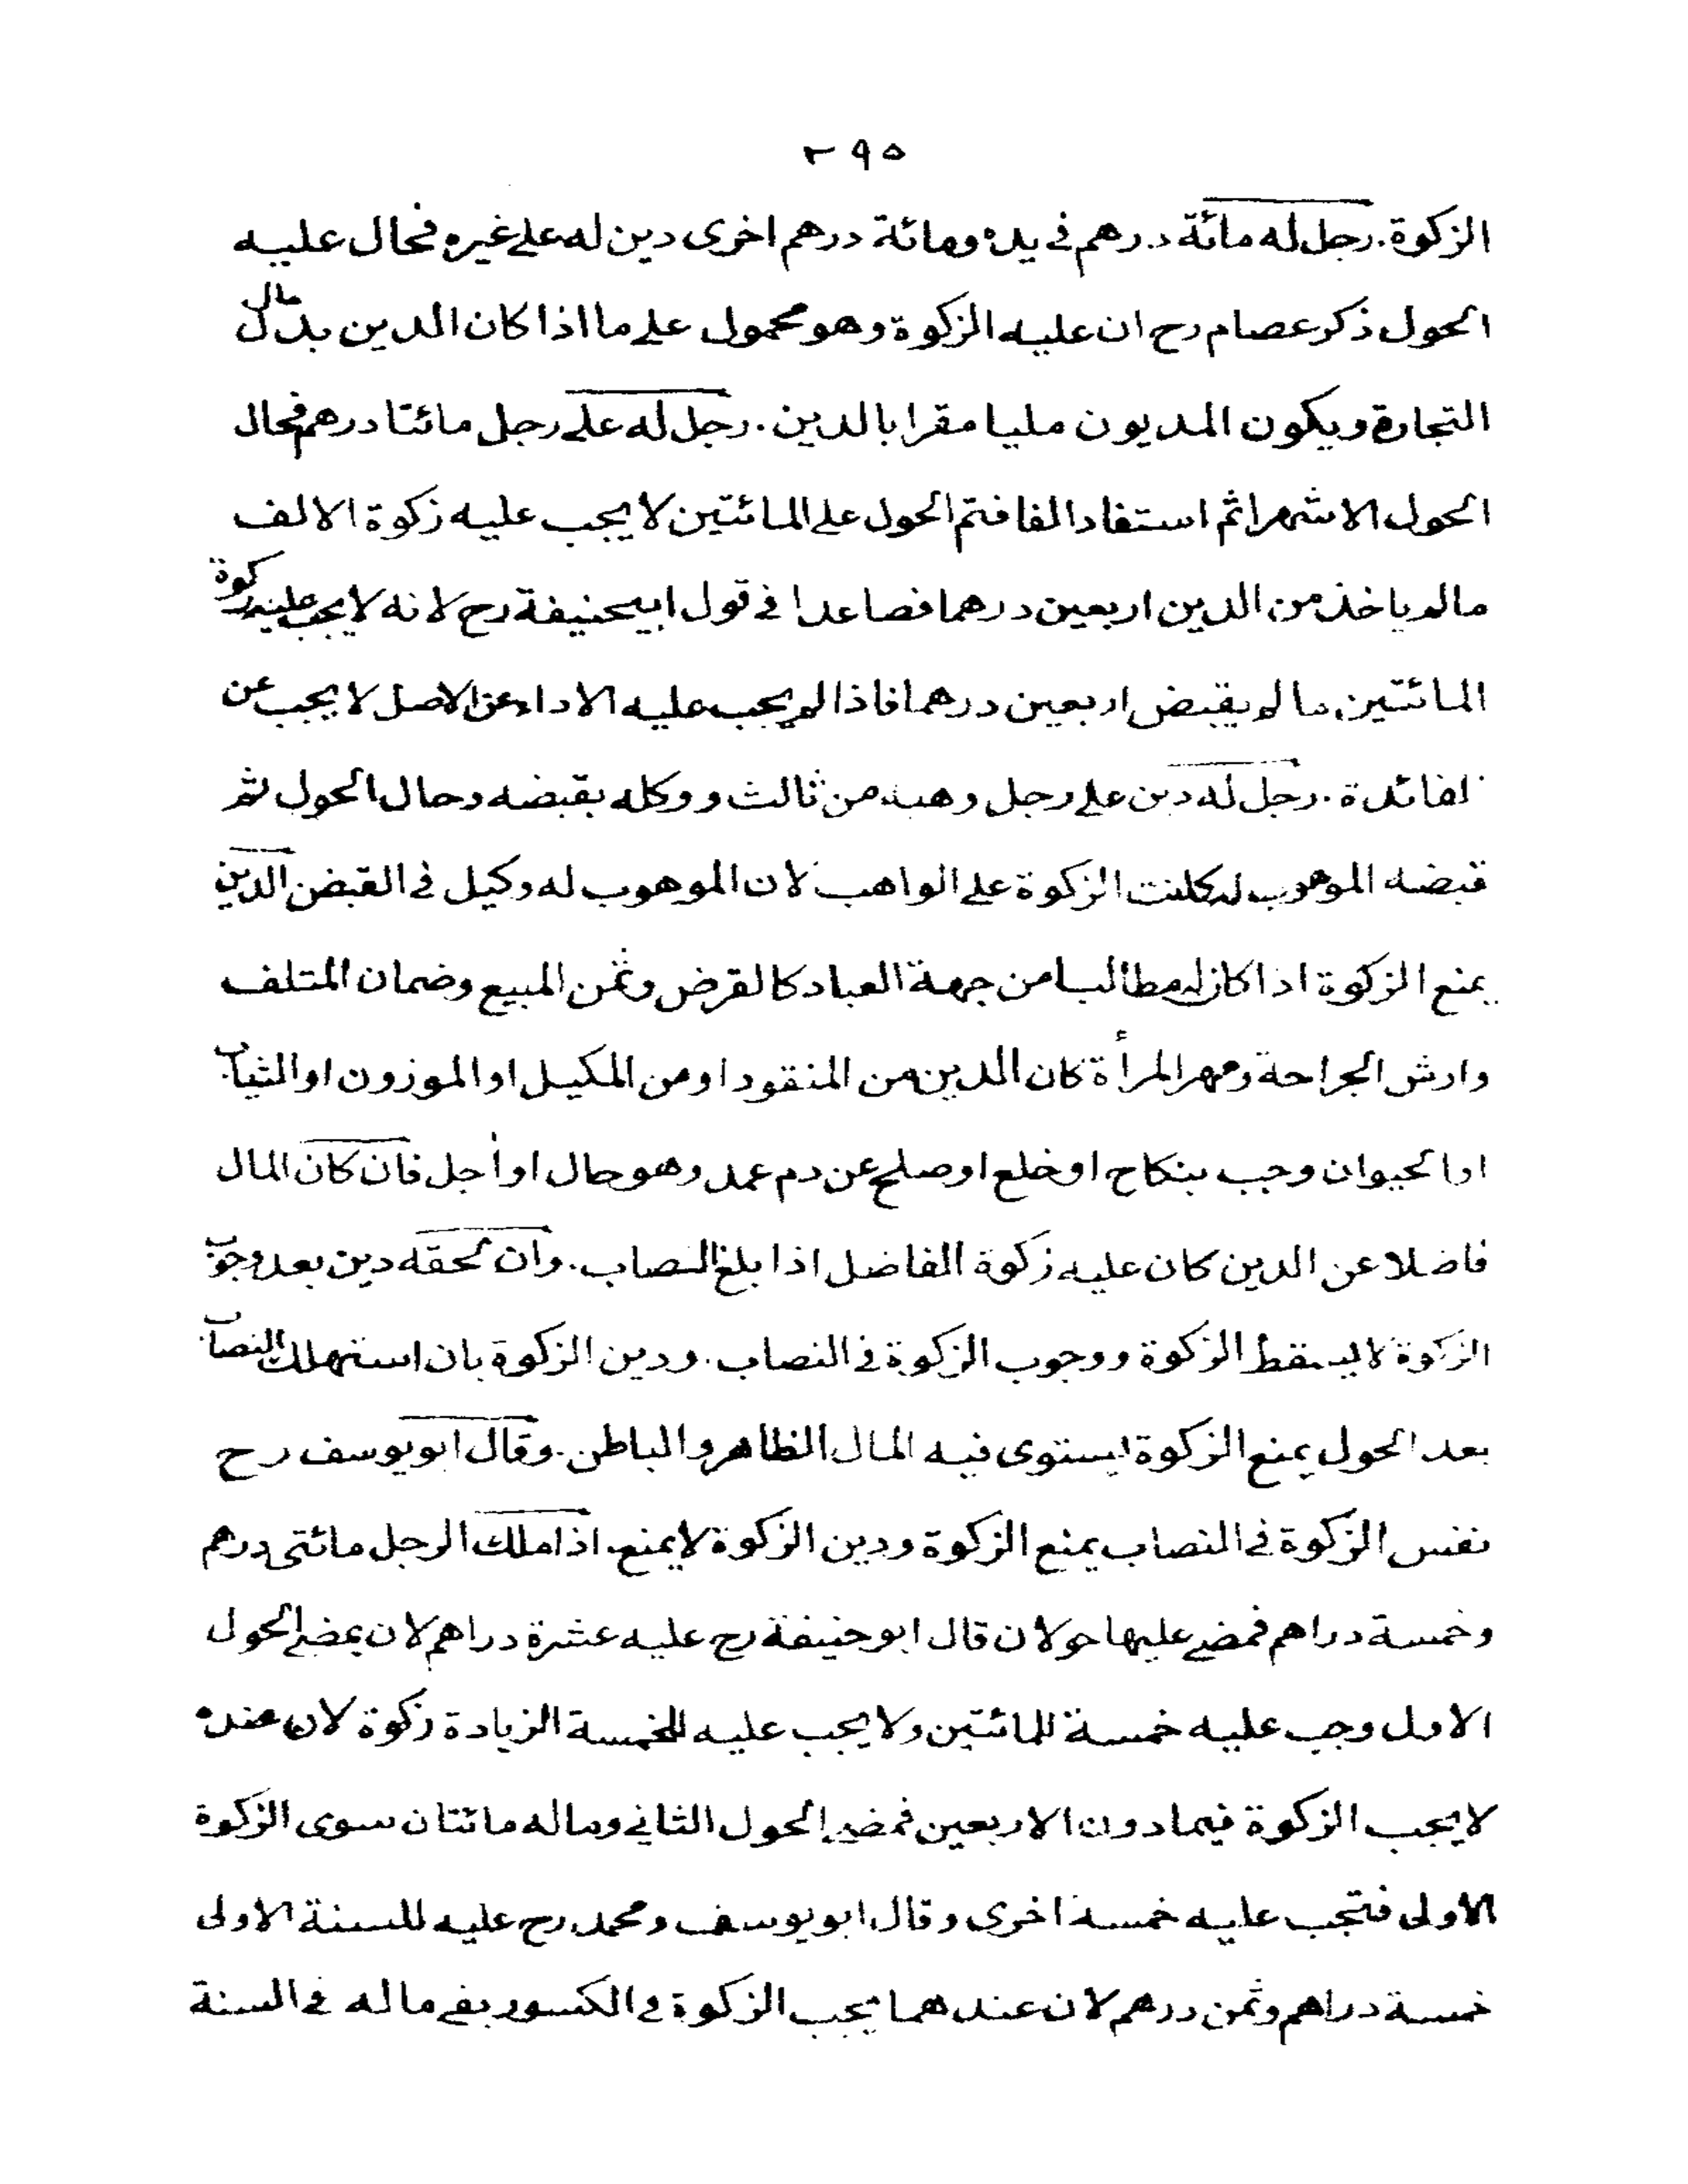 ٢٩٥
الزكوة. رجل له مائة درهم في يده ومائة درهم اخرى دين له على غيره فحال عليه
الحول ذكر عصام رح ان عليه الزكوة وهو محمول على ما اذا كان الدين بدل مال
التجارة ويكون المديون مليا مقرا بالدين. رجل له على رجل مائتا درهم فحال
الحول الا شهرا ثم استفاد الفا فتم الحول على المائتين لا يجب عليه زكوة الالف
مالم ياخذ من الدين اربعين درهما فصاعدا في قول ابيحنيفة رح لانه لا يجب عليه زكوة
المائتين ما لم يقبض اربعين درهما فاذا لم يجب عليه الاداء عن الاصل لا يجب عن
الفائدة. رجل له دين على رجل وهبه من ثالث ووكله بقبضه وحال الحول ثم
قبضه الموهوب له كانت الزكوة على الواهب لان الموهوب له وكيل في القبض الدين
يمنع الزكوة اذا كان له مطالبا من جهة العباد كالقرض وثمن المبيع وضمان المتلف
وارش الجراحة ومهر المرأة كان الدين من النقود او من المكيل او الموزون او الثياب
او الحيوان وجب بنكاح او خلع او صلح عن دم عمد وهو حال او اجل فان كان المال
فاضلا عن الدين كان عليه زكوة الفاضل اذا بلغ النصاب. وان لحقه دين بعد وجوب
الزكوة لا يسقط الزكوة ووجوب الزكوة في النصاب. ودين الزكوة بان استهلك النصاب
بعد الحول يمنع الزكوة يستوى فيه المال الظاهر والباطن. وقال ابو يوسف رح
نفس الزكوة في النصاب يمنع الزكوة ودين الزكوة لا يمنع. اذا ملك الرجل مائتى درهم
وخمسة دراهم فمضى عليها حولان قال ابو حنيفة رح عليه عشرة دراهم لان بمضى الحول
الاول وجب عليه خمسة للمائتين ولا يجب عليه للخمسة الزيادة زكوة لان عنده
لا يجب الزكوة فيما دون الاربعين فمضى الحول الثاني وماله مائتان سوى الزكوة
الاولى فتجب عليه خمسة اخرى وقال ابو يوسف ومحمد رح عليه للسنة الاولى
خمسة دراهم وثمن درهم لان عندهما يجب الزكوة في الكسور بقى ماله في السنة